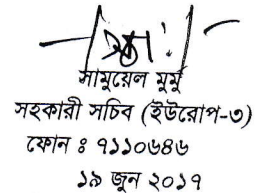 সামুয়েল মুর্মু
সহকারী সচিব (ইউরোপ-৩)
ফোন ঃ ৭১১০৬৪৬
১৯ জুন ২০১৭